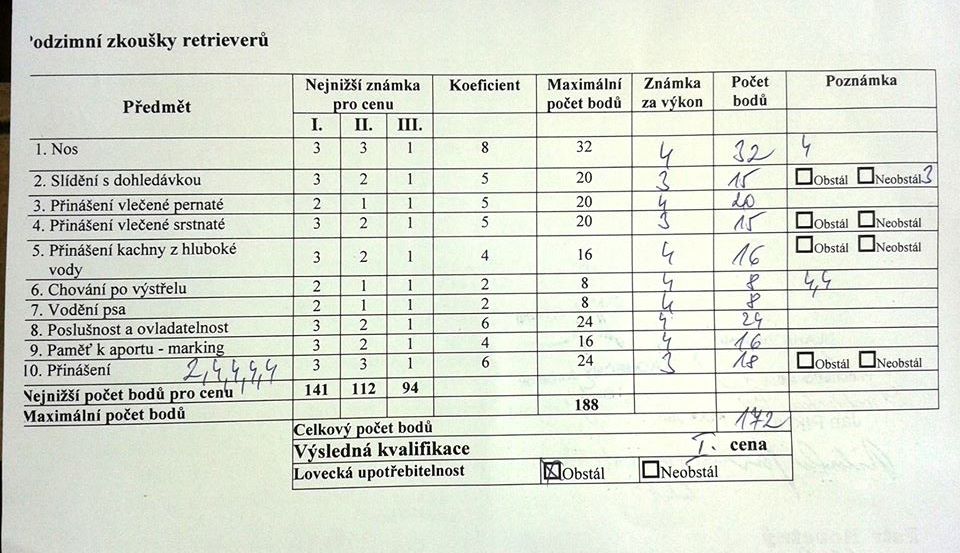 odzimní zkoušky retrieverů
Předmět Nejnižší známka pro cenu Koeficient Maximální počet bodů Známka za výkon Počet bodů Poznámka
I. II. III.
1. Nos 3 3 1 8 32 4 32 4
2. Slídění s dohledávkou 3 2 1 5 20 3 15 Obstál Neobstál 3
3. Přinášení vlečené pernaté 2 1 1 5 20 4 20
4. Přinášení vlečené srstnaté 3 2 1 5 20 3 15 Obstál Neobstál
5. Přinášení kachny z hluboké vody 3 2 1 4 16 4 16 Obstál Neobstál
6. Chování po výstřelu 2 1 1 2 8 4 8 4,4
7. Vodění psa 2 1 1 2 8 4 8
8. Poslušnost a ovladatelnost 3 2 1 6 24 4 24
9. Paměť k aportu - marking 3 2 1 4 16 4 16
10. Přinášení 2,4,4,4,4 3 3 1 6 24 3 18 Obstál Neobstál
Nejnižší počet bodů pro cenu 141 112 94
Maximální počet bodů 188
Celkový počet bodů 172
Výsledná kvalifikace I. cena
Lovecká upotřebitelnost Obstál Neobstál